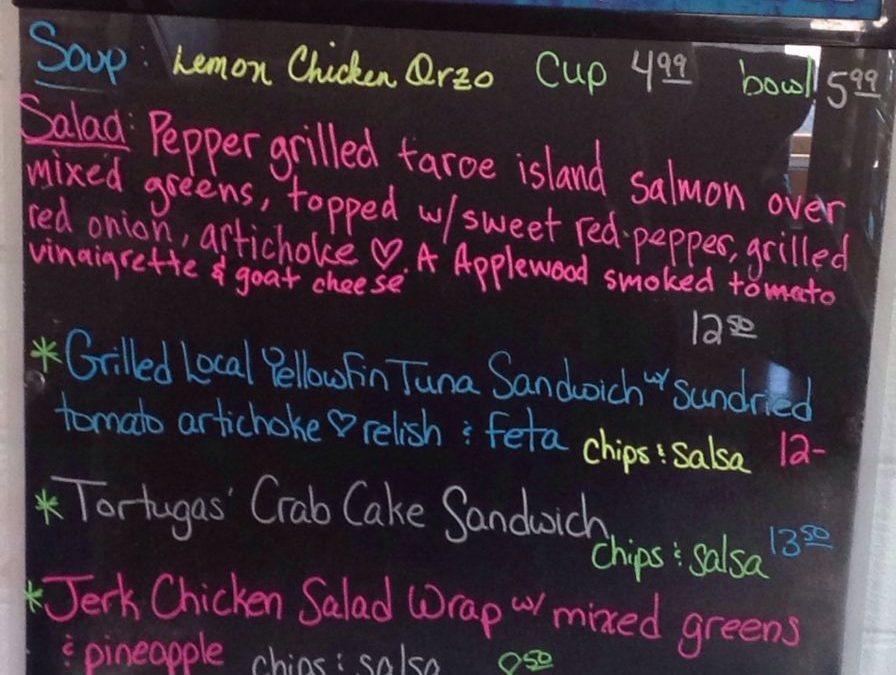 Soup: Lemon Chicken Orzo Cup 4.99 bowl 5.99
Salad: Pepper grilled faroe island salmon over
mixed greens, topped w/sweet red pepper, grilled
red onion, artichoke ♡. A Applewood smoked tomato
vinaigrette & goat cheese
12.50
*Grilled Local Yellowfin Tuna Sandwich w/ sundried
tomato artichoke ♡ relish & feta chips & salsa 12-
*Tortugas' Crab Cake Sandwich
chips & salsa 13.50
*Jerk Chicken Salad Wrap w/ mixed greens
& pineapple chips & salsa